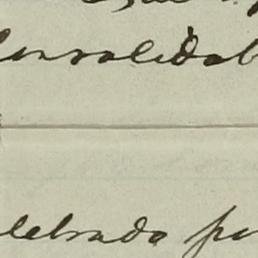 Consolidab
lebrada po